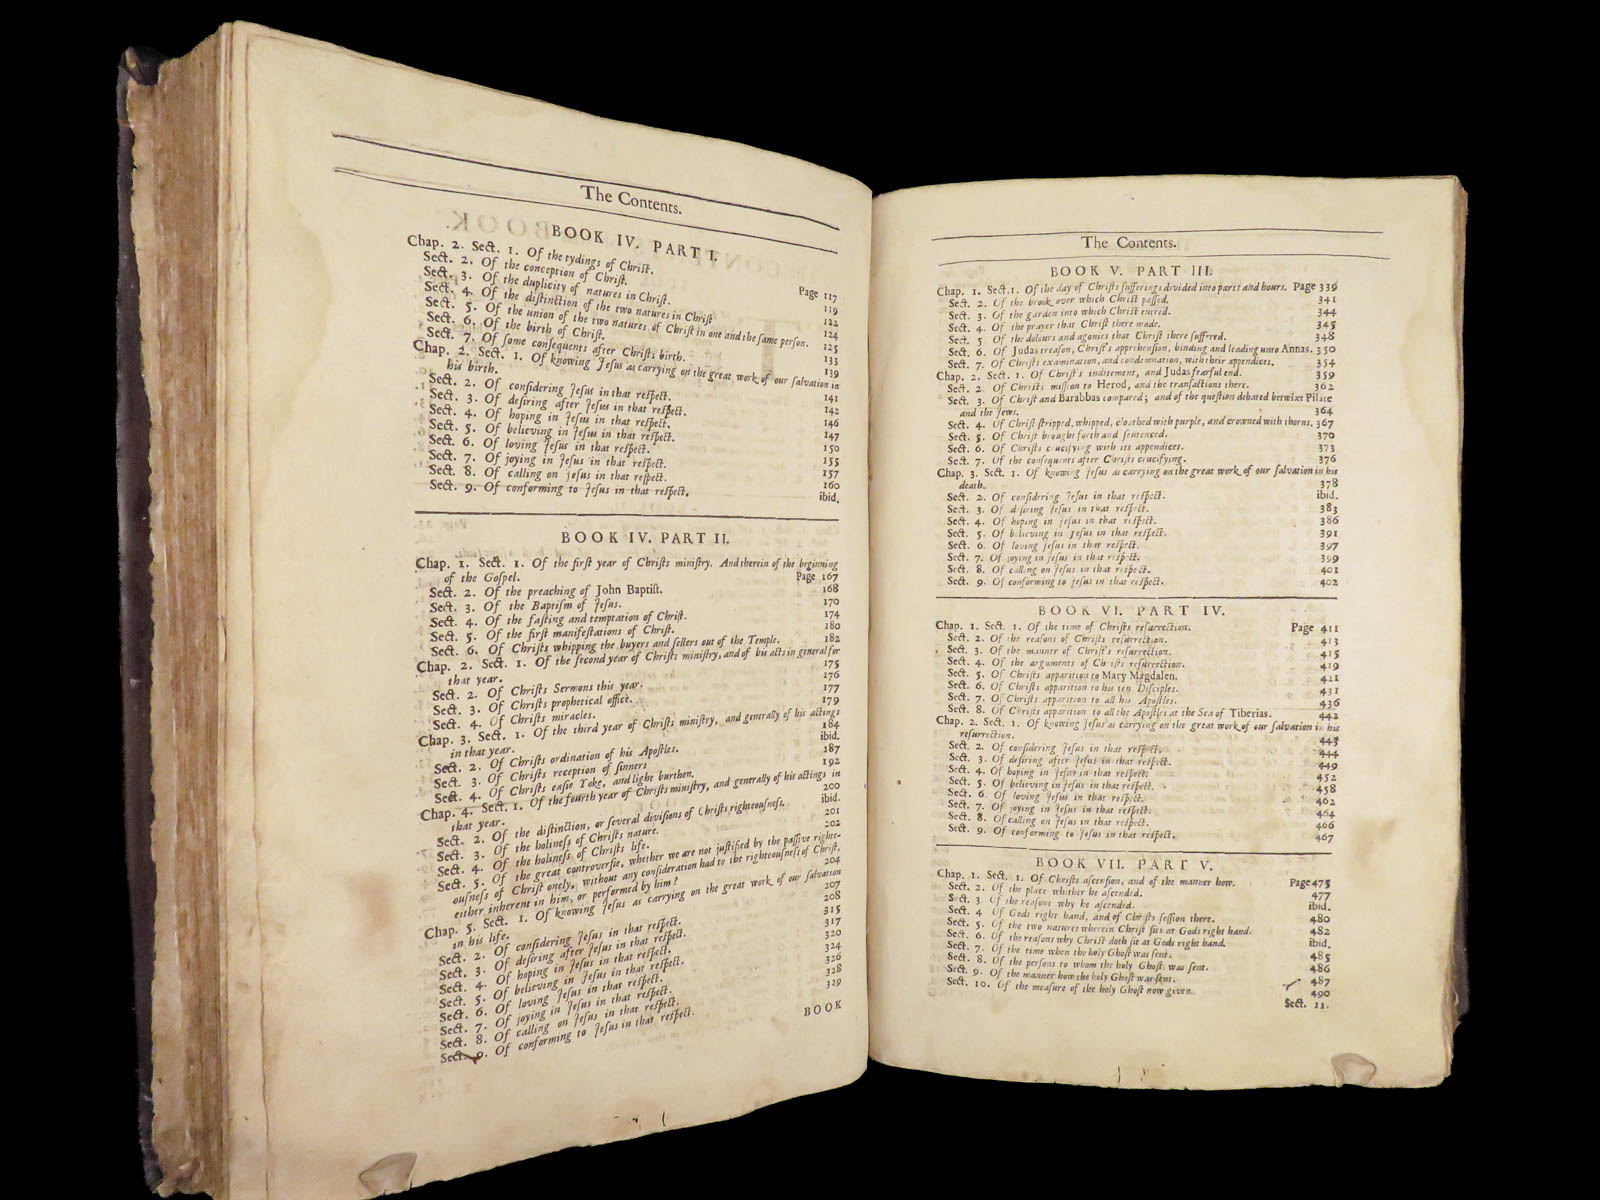 The Contents.
BOOK IV. PART I.
Chap. 2. Sect. 1. Of the tydings of Chriſt. Page 117
Sect. 2. Of the conception of Chriſt. 119
Sect. 3. Of the duplicity of natures in Chriſt. 122
Sect. 4. Of the diſtinction of the two natures in Chriſt 124
Sect. 5. Of the union of the two natures of Chriſt in one and the ſame perſon. 125
Sect. 6. Of the birth of Chriſt. 133
Sect. 7. Of ſome conſequents after Chriſts birth. 139
Chap. 2. Sect. 1. Of knowing Jeſus as carrying on the great work of our ſalvation in
his birth. 141
Sect. 2. Of conſidering Jeſus in that reſpect. 142
Sect. 3. Of deſiring after Jeſus in that reſpect. 146
Sect. 4. Of hoping in Jeſus in that reſpect. 147
Sect. 5. Of believing in Jeſus in that reſpect. 150
Sect. 6. Of loving Jeſus in that reſpect. 155
Sect. 7. Of joying in Jeſus in that reſpect. 157
Sect. 8. Of calling on jeſus in that reſpect. 160
Sect. 9. Of conforming to Jeſus in that reſpect. ibid.
BOOK IV. PART II.
Chap. 1. Sect. 1. Of the firſt year of Chriſts miniſtry. And therein of the beginning
of the Goſpel. Page 167
Sect. 2. Of the preaching of John Baptiſt. 168
Sect. 3. Of the Baptiſm of Jeſus. 170
Sect. 4. Of the faſting and temptation of Chriſt. 174
Sect. 5. Of the firſt manifeſtations of Chriſt. 180
Sect. 6. Of Chriſts whipping the buyers and ſellers out of the Temple. 182
Chap. 2. Sect. 1. Of the ſecond year of Chriſts miniſtry, and of his acts in general for
that year. 175
Sect. 2. Of Chriſts Sermons this year. 176
Sect. 3. Of Chriſts prophetical office. 177
Sect. 4. Of Chriſts miracles. 179
Chap. 3. Sect. 1. Of the third year of Chriſts miniſtry, and generally of his actings
in that year. 184
Sect. 2. Of Chriſts ordination of his Apoſtles. ibid.
Sect. 3. Of Chriſts reception of ſinners 187
Sect. 4. Of Chriſts eaſie Yoke, and light burthen. 192
Chap. 4. Sect. 1. Of the fourth year of Chriſts miniſtry, and generally of his actings in
that year. 200
Sect. 2. Of the diſtinction, or ſeveral diviſions of Chriſts righteouſneſs. ibid.
Sect. 3. Of the holineſs of Chriſts nature. 201
Sect. 4. Of the holineſs of Chriſts life. 202
Sect. 5. Of the great controverſie, whether we are not juſtified by the paſſive righte-
ouſneſs of Chriſt onely, without any conſideration had to the righteouſneſs of Chriſt,
either inherent in him, or performed by him? 204
Chap. 5. Sect. 1. Of knowing Jeſus as carrying on the great work of our ſalvation
in his life. 207
Sect. 2. Of conſidering Jeſus in that reſpect. 208
Sect. 3. Of deſiring after Jeſus in that reſpect. 315
Sect. 4. Of hoping in Jeſus in that reſpect. 317
Sect. 5. Of believing in Jeſus in that reſpect. 320
Sect. 6. Of loving Jeſus in that reſpect. 324
Sect. 7. Of joying in Jeſus in that reſpect. 326
Sect. 8. Of calling on Jeſus in that reſpect. 328
Sect. 9. Of conforming to Jeſus in that reſpect. 329
BOOK
The Contents.
BOOK V. PART III.
Chap. 1. Sect. 1. Of the day of Chriſts ſufferings divided into parts and hours. Page 339
Sect. 2. Of the brook over which Chriſt paſſed. 341
Sect. 3. Of the garden into which Chriſt entred. 344
Sect. 4. Of the prayer that Chriſt there made. 345
Sect. 5 Of the dolours and agonies that Chriſt there ſuffered. 348
Sect. 6. Of Judas treaſon, Chriſt's apprehenſion, binding and leading unto Annas. 350
Sect. 7. Of Chriſts examination, and condemnation, with their appendices. 354
Chap. 2. Sect. 1. Of Chriſt's inditement, and Judas fearful end. 359
Sect. 2 Of Chriſts miſſion to Herod, and the tranſactions there. 362
Sect. 3. Of Chriſt and Barabbas compared; and of the queſtion debated betwixt Pilate
and the Jews. 364
Sect. 4. Of Chriſt ſtripped, whipped, cloathed with purple, and crowned with thorns. 367
Sect. 5. Of Chriſt brought forth and ſentenced. 370
Sect. 6. Of Chriſts crucifying with its appendices. 373
Sect. 7. Of the conſequents after Chriſts crucifying. 376
Chap. 3. Sect. 1. Of knowing Jeſus as carrying on the great work of our ſalvation in his
death. 378
Sect. 2. Of conſidering Jeſus in that reſpect. ibid.
Sect. 3. Of deſiring Jeſus in that reſpect. 383
Sect. 4. Of hoping in Jeſus in that reſpect. 386
Sect. 5. Of believing in Jeſus in that reſpect. 391
Sect. 6. Of loving Jeſus in that reſpect. 397
Sect. 7. Of joying in Jeſus in that reſpect. 399
Sect. 8. Of calling on Jeſus in that reſpect. 401
Sect. 9. Of conforming to Jeſus in that reſpect. 402
BOOK VI. PART IV.
Chap. 1. Sect. 1. Of the time of Chriſts reſurrection. Page 411
Sect. 2. Of the reaſons of Chriſts reſurrection. 413
Sect. 3. Of the manner of Chriſt's reſurrection. 415
Sect. 4. Of the arguments of Chriſts reſurrection. 419
Sect. 5. Of Chriſts apparition to Mary Magdalen. 421
Sect. 6. Of Chriſts apparition to his ten Diſciples. 431
Sect. 7. Of Chriſts apparition to all his Apoſtles. 436
Sect. 8. Of Chriſts apparition to all the Apoſtles at the Sea of Tiberias. 442
Chap. 2. Sect. 1. Of knowing Jeſus as carrying on the great work of our ſalvation in his
reſurrection. 443
Sect. 2. Of conſidering Jeſus in that reſpect. 444
Sect. 3. Of deſiring after Jeſus in that reſpect. 449
Sect. 4. Of hoping in Jeſus in that reſpect. 452
Sect. 5. Of believing in Jeſus in that reſpect. 458
Sect. 6. Of loving Jeſus in that reſpect. 462
Sect. 7. Of joying in Jeſus in that reſpect. 464
Sect. 8. Of calling on Jeſus in that reſpect. 466
Sect. 9. Of conforming to Jeſus in that reſpect. 467
BOOK VII. PART V.
Chap. 1. Sect. 1. Of Chriſts aſcenſion, and of the manner how. Page 475
Sect. 2. Of the place whither he aſcended. 477
Sect. 3. Of the reaſons why he aſcended. ibid.
Sect. 4 Of Gods right hand, and of Chriſts ſeſſion there. 480
Sect. 5. Of the two natures wherein Chriſt ſits at Gods right hand. 482
Sect. 6. Of the reaſons why Chriſt doth ſit at Gods right hand. ibid.
Sect. 7. Of the time when the holy Ghoſt was ſent. 485
Sect. 8. Of the perſons to whom the holy Ghoſt was ſent. 486
Sect. 9. Of the manner how the holy Ghoſt was ſent. 487
Sect. 10. Of the meaſure of the holy Ghoſt now given. 490
Sect. 11.